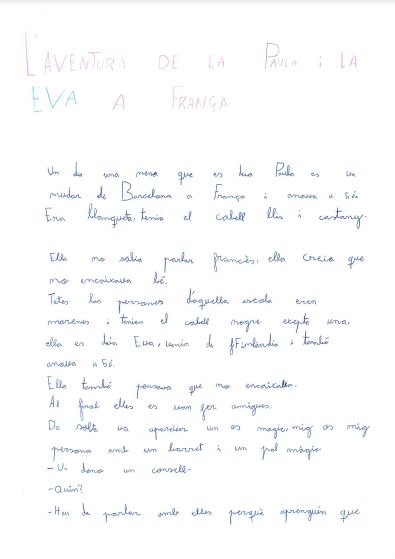 L'AVENTURA DE LA PAULA i LA
EVA A FRANÇA
Un dia una nena que es deia Paula es va
mudar de Barcelona a França i anava a 5é.
Era llangueta, tenia el cabell llis i castany.
Ella no sabia parlar francès, ella creia que
no encaixava bé.
Totes les persones d'aquella escola eren
morenes i tenien el cabell negre exepte una,
ella es deia Eva, venia de Finlandia i també
anava a 5é.
Ella també pensava que no encaixaba.
Al final elles es van fer amigues.
De solte va apareixer un os magic, mig os mig
persona amb un barret i un pal màgic
-Us dono un consell-
-Quin?
-Heu de parlar amb elles perquè aprenguin que